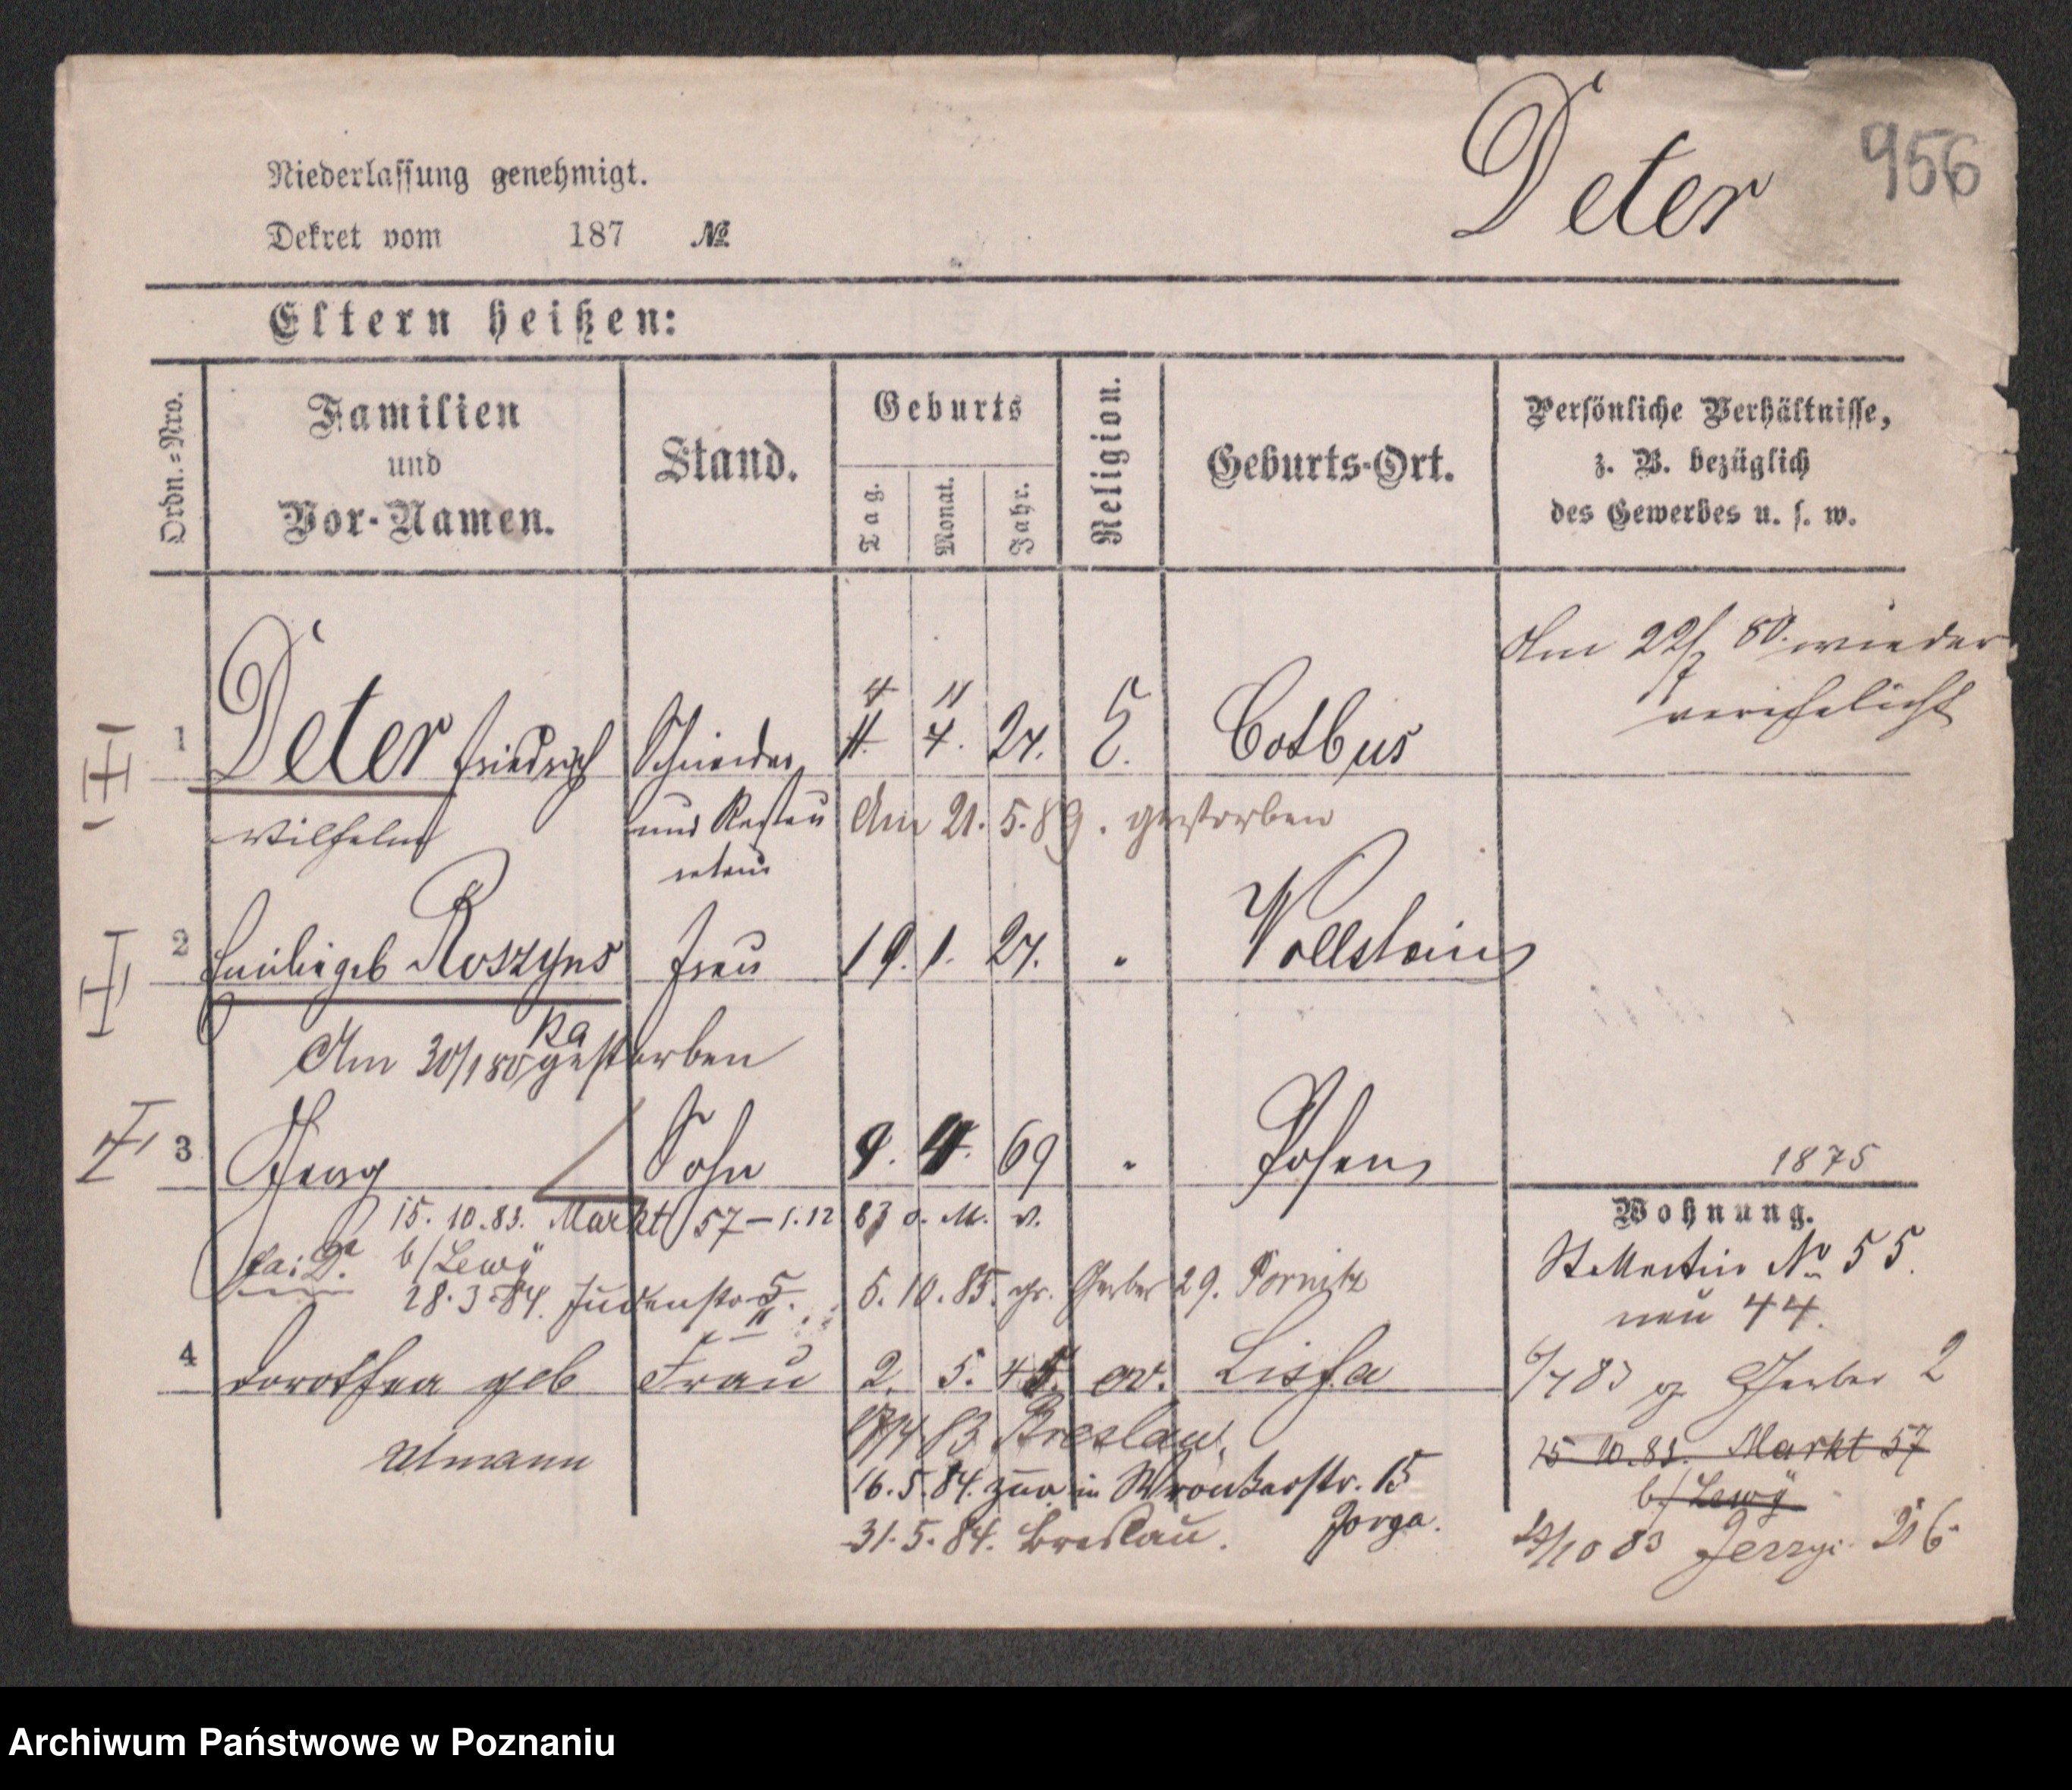 Deter
956
Niederlassung genehmigt.
Dekret vom 187 №
Eltern heißen:
Ordn.=Nro.
Familien
und
Vor-Namen.
Stand.
Geburts
Tag.
Monat.
Jahr.
Religion.
Geburts-Ort.
Persönliche Verhältnisse,
z. B. bezüglich
des Gewerbes u. s. w.
Am 22/7 80. wieder
verehelicht
4 11
1 Deter Friedrich Schneider 11. 4. 24. E. Cotbus
Wilhelm und Restau Am 21. 5. 89. gestorben
rateur
2 geb Roszyns Frau 19. 1. 24. " Wollstein
ka
Am 30/1 80 gestorben
3 Georg Sohn 9. 4. 69 " Posen
1875
Wohnung.
15. 10. 83. Markt 57 – 1. 12 83 o. M. v.
b/Lewy
28. 3. 84. Judenstr 5. 5. 10. 85. gr. Gerber 29.
St Martin No 55.
neu 44.
4 Dorothea geb Frau 2. 5. 45. ev. Lissa
6/4 83 gr Gerber 2
Ulmann 83 Breslau.
15 10. 83. Markt 57
b/Lewy
16. 5. 84. zur. in Wronkerstr. 15
31. 5. 84. Breslau.
10 83 Jerzyc. 216